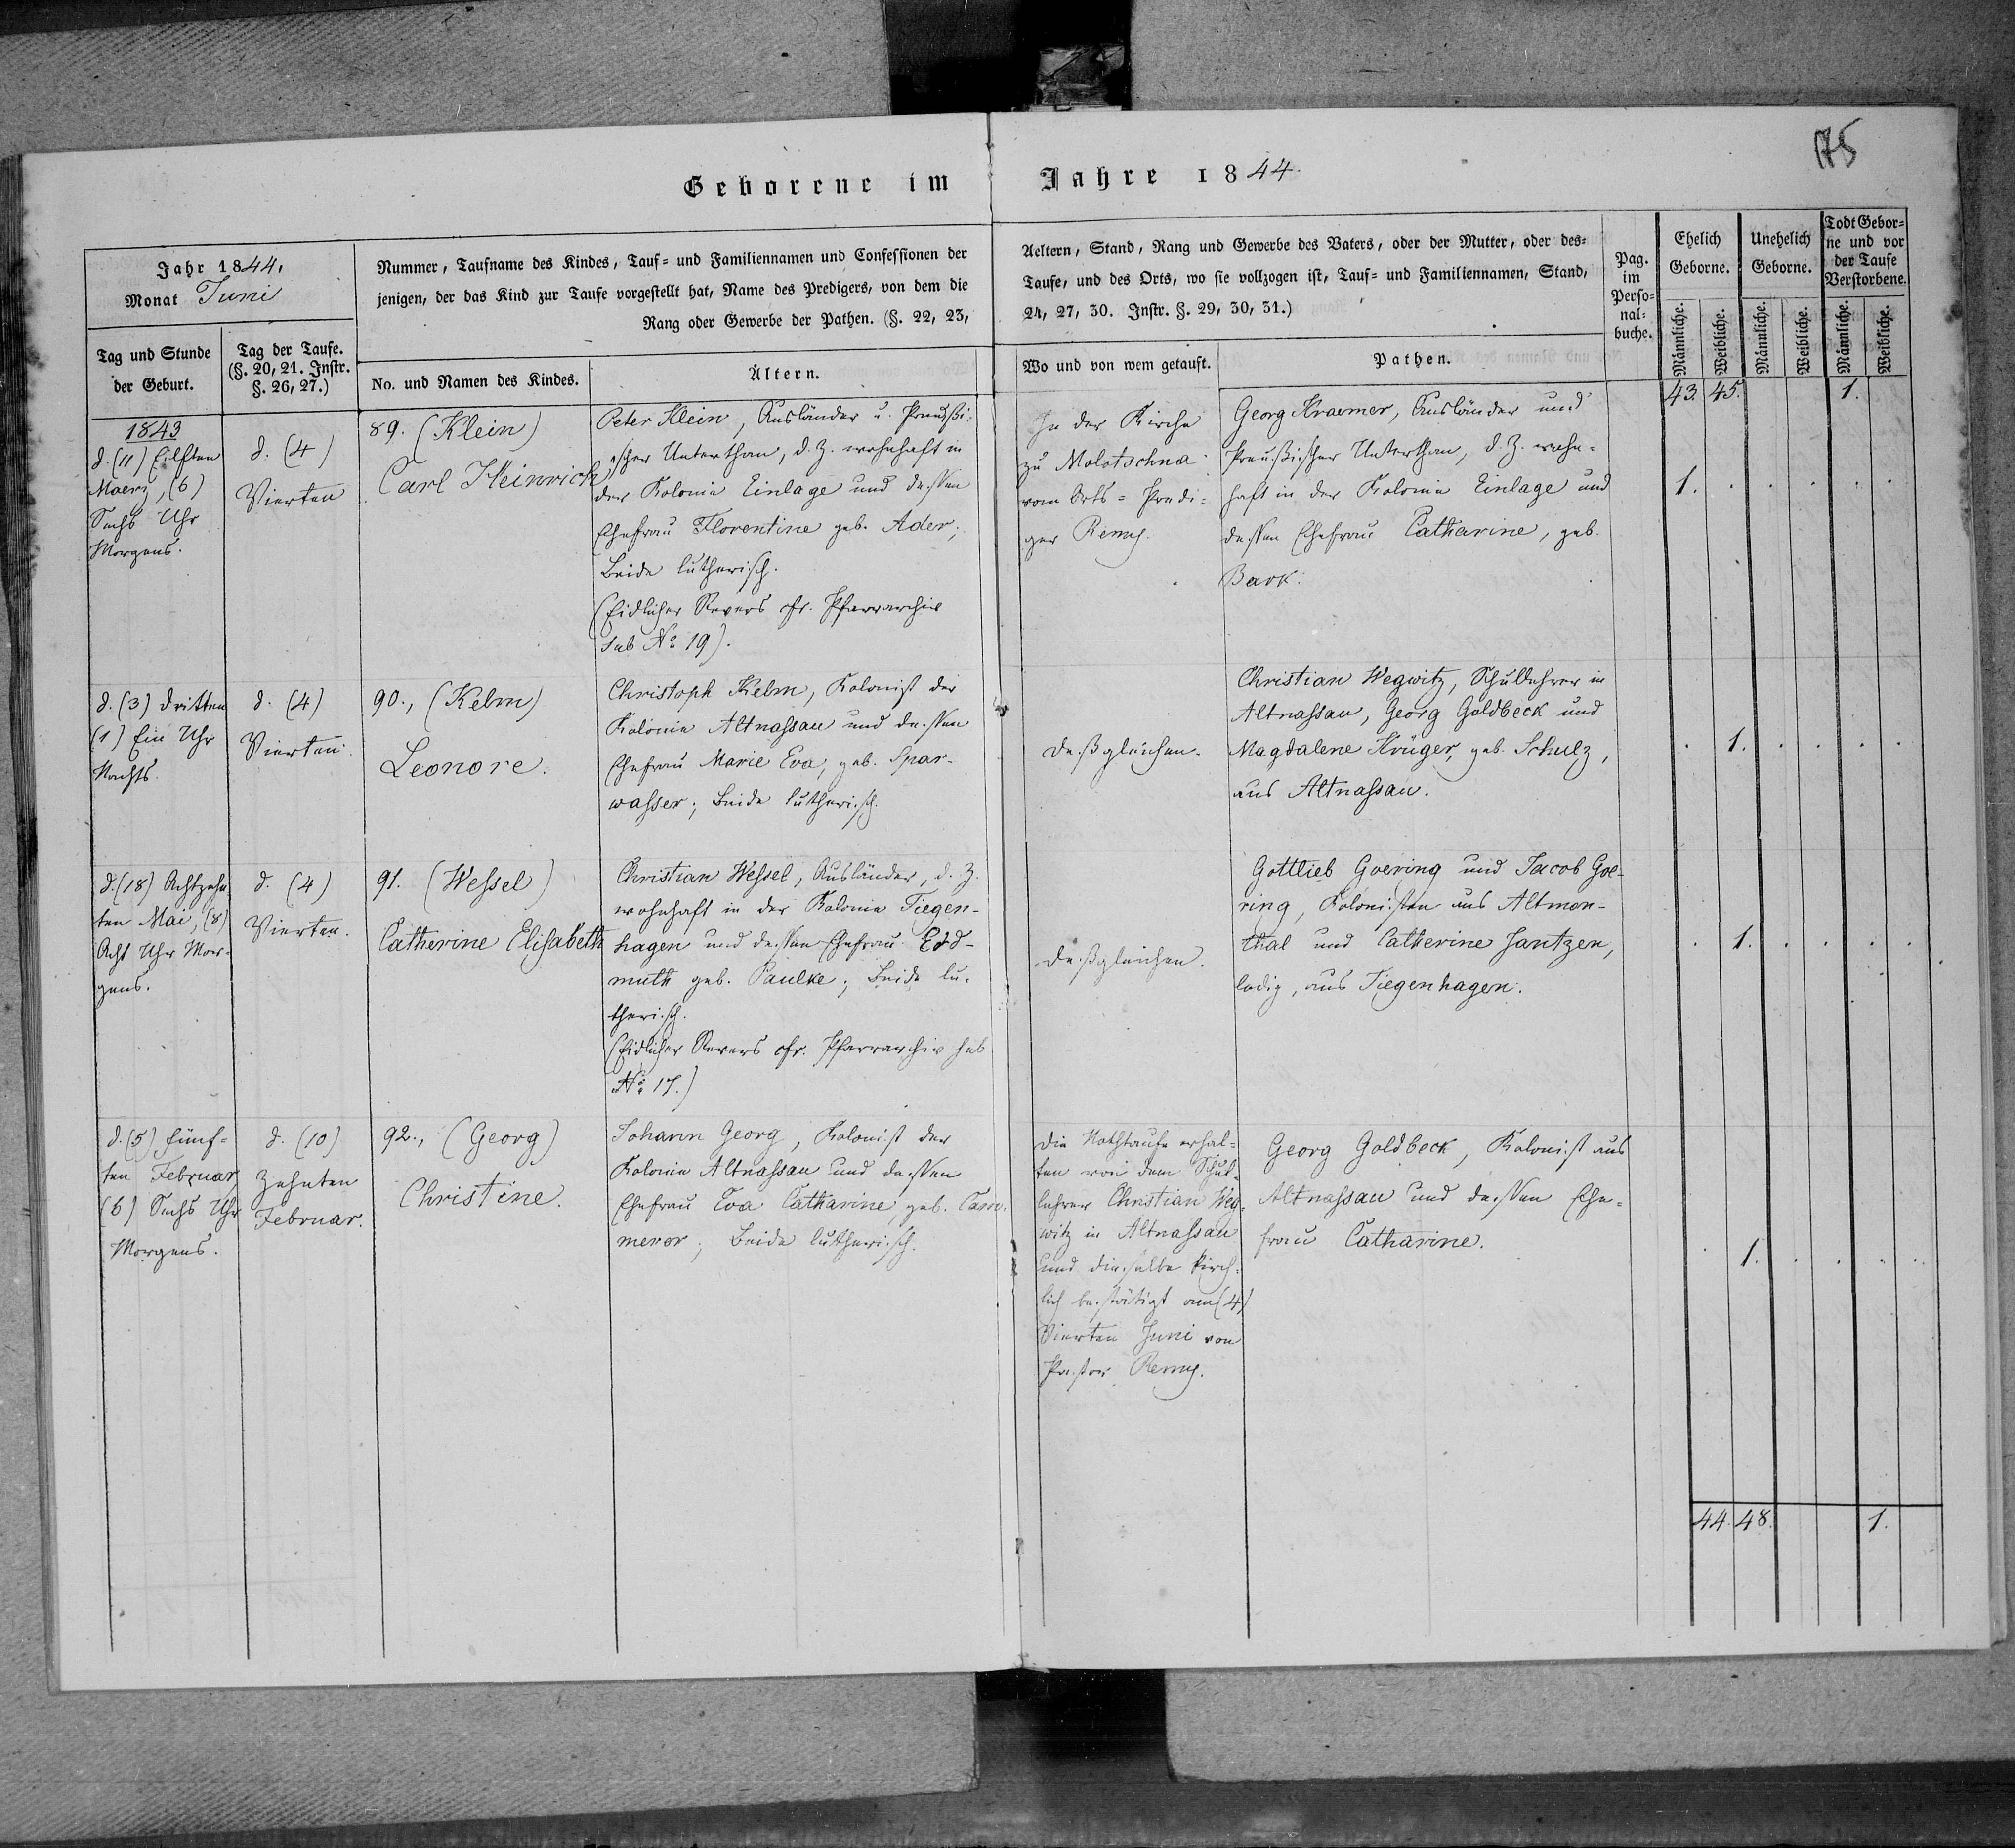 175
Geborene im Jahre 1844.
Jahr 1844.
Monat Juni
Nummer, Taufname des Kindes, Tauf- und Familiennamen und Confessionen der
jenigen, der das Kind zur Taufe vorgestellt hat, Name des Predigers, von dem die
Rang oder Gewerbe der Pathen. (§. 22, 23,
Aeltern, Stand, Rang und Gewerbe des Vaters, oder der Mutter, oder des-
Taufe, und des Orts, wo sie vollzogen ist, Tauf- und Familiennamen, Stand,
24, 27, 30. Instr. §. 29, 30, 31.)
Pag.
im
Perso-
nal-
buche.
Ehelich
Geborne.
Unehelich
Geborne.
Todt Gebor-
ne und vor
der Taufe
Verstorbene.
Tag und Stunde
der Geburt.
Tag der Taufe.
(§. 20, 21. Instr.
§. 26, 27.)
No. und Namen des Kindes.
Ältern.
Wo und von wem getauft.
Pathen.
Männliche.
Weibliche.
Männliche.
Weibliche.
Männliche.
Weibliche.
43. 45. 1.
1843
d. (11) Eilften
Maerz, (6)
Sechs Uhr
Morgens.
d. (4)
Vierten
89. (Klein)
Carl Heinrich
Peter Klein, Ausländer u. Preußi-
scher Unterthan, d. Z. wohnhaft in
der Kolonie Einlage und dessen
Ehefrau Florentine geb. Ader;
Beide lutherisch.
(Eidlicher Revers cfr. Pfarrarchiv
sub No 19).
In der Kirche
zu Molotschna
vom Orts-Predi-
ger Remy.
Georg Kraemer, Ausländer und
Preußischer Unterthan, d. Z. wohn-
haft in der Kolonie Einlage und
dessen Ehefrau Catharine, geb.
Bark.
1. . . . . .
d. (3) dritten
(1) Ein Uhr
Nachts.
d. (4)
Vierten.
90., (Kelm)
Leonore.
Christoph Kelm, Kolonist der
Kolonie Altnassau und dessen
Ehefrau Marie Eva, geb. Spar-
wasser; Beide lutherisch.
Deßgleichen.
Christian Wegwitz, Schullehrer in
Altnassau, Georg Goldbeck und
Magdalene Krüger, geb. Schulz,
aus Altnassau.
. 1. . . . .
d. (18) Achtzehn
ten Mai, (8)
Acht Uhr Mor-
gens.
d. (4)
Vierten.
91. (Wessel)
Catherine Elisabeth
Christian Wessel, Ausländer, d. Z.
wohnhaft in der Kolonie Tiegen-
hagen und dessen Ehefrau Erd-
muth geb. Paulke; Beide lu-
therisch.
(Eidlicher Revers cfr. Pfarrarchiv sub
No 17.)
Deßgleichen.
Gottlieb Goering und Jacob Goe-
ring, Kolonisten aus Altmon-
thal und Catherine Jantzen,
ledig, aus Tiegenhagen.
. 1. . . . .
d. (5) Fünf-
ten Februar
(6) Sechs Uhr
Morgens.
d. (10)
Zehnten
Februar.
92., (Georg)
Christine.
Johann Georg, Kolonist der
Kolonie Altnassau und dessen
Ehefrau Eva Catharine, geb. Cam-
merer; Beide lutherisch.
Die Nothtaufe erhal-
ten von dem Schul-
lehrer Christian Weg-
witz in Altnassau
und dieselbe kirch-
lich bestätigt am (4)
Vierten Juni von
Pastor Remy.
Georg Goldbeck, Kolonist aus
Altnassau und dessen Ehe-
frau Catharine.
. 1. . . . .
44. 48. 1.